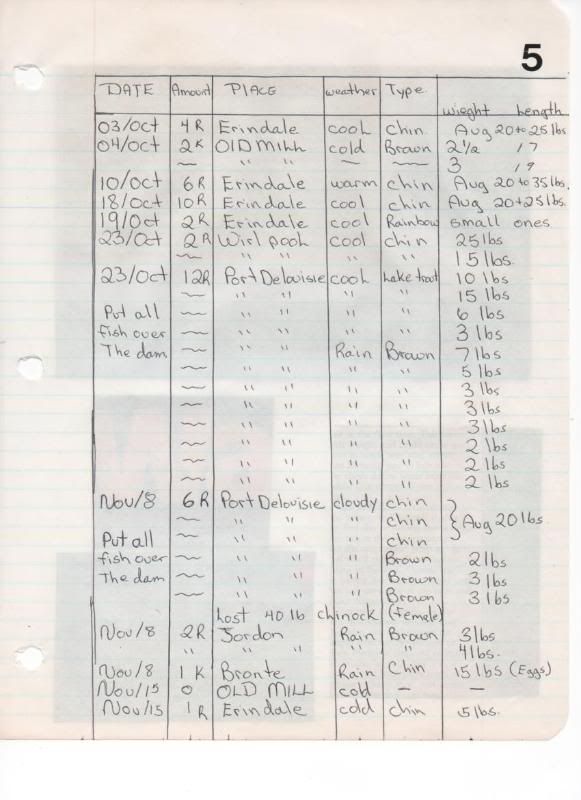 5
DATE Amount PLACE weather Type
wieght Length
03/Oct 4R Erindale cool chin. Aug 20 to 25 lbs
04/Oct 2K OLD Mill cold Brown 2 1/2 17
~ " " ~ ~ 3 19
10/Oct 6R Erindale warm chin Aug 20 to 35 lbs.
18/Oct 10R Erindale cool chin Aug 20 + 25 lbs.
19/Oct 2R Erindale cool Rainbow small ones.
23/Oct 2R Wirl pool cool chin 25 lbs
~ " " " " 15 lbs.
23/Oct 12R Port Delouisie cool Lake trout 10 lbs
~ " " " " 15 lbs
Put all ~ " " " " 6 lbs
fish over ~ " " " " 3 lbs
The dam ~ " " Rain Brown 7 lbs
~ " " " " 5 lbs
~ " " " " 3 lbs
~ " " " " 3 lbs
~ " " " " 3 lbs
~ " " " " 2 lbs
~ " " " " 2 lbs
~ " " " " 2 lbs
Nov/8 6R Port Delouisie cloudy chin
~ " " " chin } Aug 20 lbs.
Put all ~ " " " chin
fish over ~ " " " Brown 2 lbs
The dam ~ " " " Brown 3 lbs
~ " " " Brown 3 lbs
Lost 40 lb chinock (Female)
Nov/8 2R Jordon Rain Brown 3 lbs
" " " " " " 4 lbs.
Nov/8 1K Bronte Rain Chin 15 lbs (Eggs)
Nov/15 0 OLD MILL cold — —
Nov/15 1R Erindale cold chin 5 lbs.